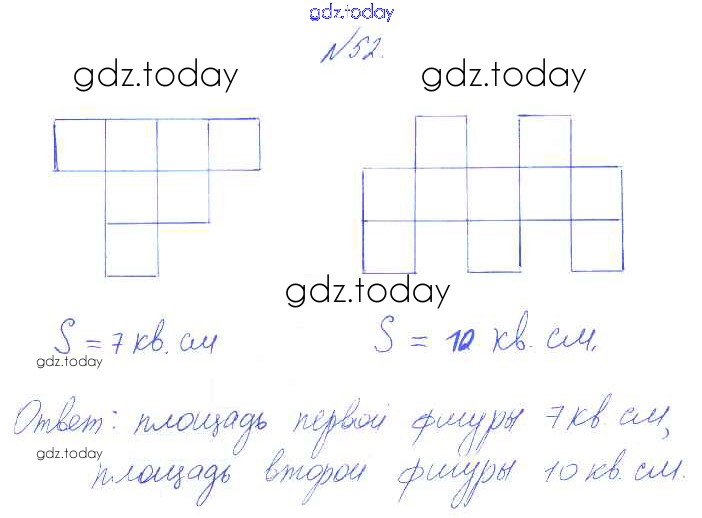 gdz.today
№52.
gdz.today gdz.today
gdz.today
S = 7 кв. см S = 10 кв. см.
gdz.today
Ответ: площадь первой фигуры 7 кв. см,
gdz.today
площадь второй фигуры 10 кв. см.